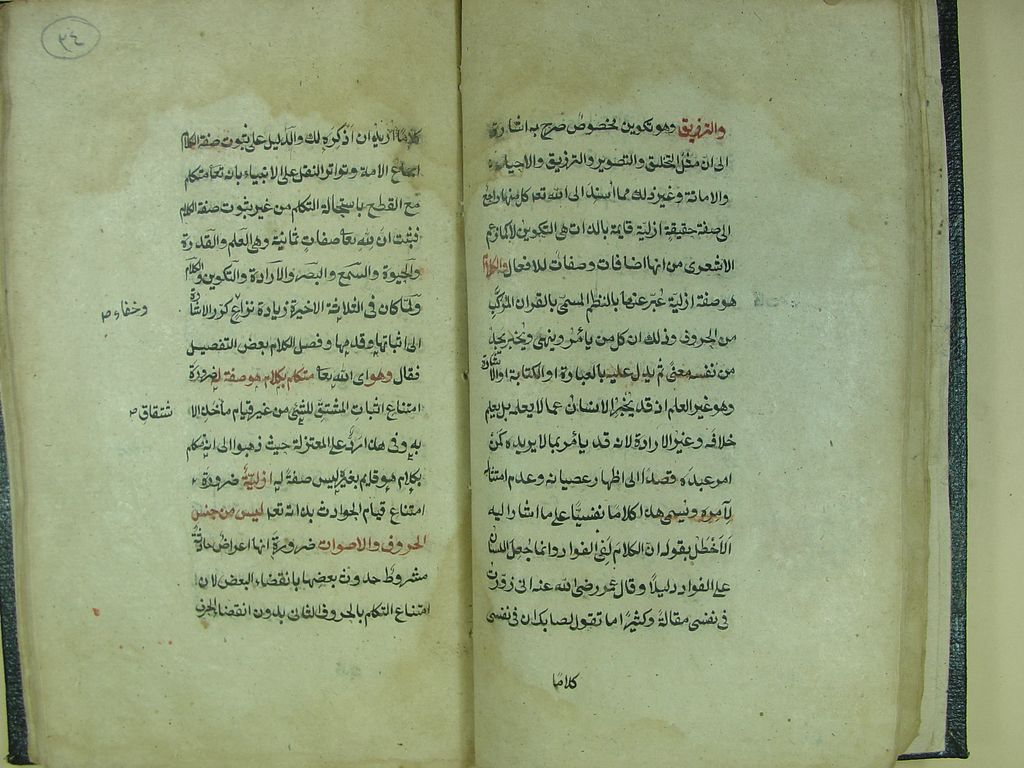 والترزيق وهو تكوين مخصوص صرح به اشارة
الى ان مثل التخليق والتصوير والترزيق والاحياء
والاماتة وغير ذلك مما أسند الى الله تعـ كل منها راجع
الى صفة حقيقة ازلية قايمة بالذات هى التكوين لا كما زعم
الاشعرى من انها اضافات وصفات للافعال والكلام
هو صفة ازلية عبر عنها بالنظم المسمى بالقران المركب
من الحروف وذلك ان كل من يأمر وينهى ويخبر يجد
من نفسه معنى ثم يدل عليه بالعبارة او الكتابة او الاشارة
وهو غير العلم اذ قد يخبر الانسان عما لا يعلم بل يعلم
خلافه وغير الارادة لانه قد يأمر بما لا يريده كمن
امر عبده قصدا الى اظهار عصيانه وعدم امتثاله
لآمره ويسمى هذا كلاما نفسيا على ما اشار اليه
الاخطل بقوله ان الكلام لفى الفواد وانما جعل اللسان
على الفواد دليلا وقال عمر رضى الله عنه انى زورت
فى نفسى مقالة وكثيرا ما تقول لصاحبك ان فى نفسى
كلاما
٣٤
كلاما اريد ان أذكره لك والدليل على ثبوت صفة الكلام
اجماع الامة وتواتر النقل على الانبياء بانه تعا متكلم
مع القطع باستحالة التكلم من غير ثبوت صفة الكلام
فثبت ان لله تعا صفات ثمانية وهى العلم والقدرة
والحيوة والسمع والبصر والارادة والتكوين والكلام
ولما كان فى الثلاثة الاخيرة زيادة نزاع كرر الاشارة
وخفاء
الى اثباتها وقدمها وفصل الكلام بعض التفصيل
فقال وهو اى الله تعا متكلم بكلام هو صفة له ضرورة
امتناع اثبات المشتق للشئ من غير قيام مأخذ الا
شتقاق
به وفى هذا رد على المعتزلة حيث ذهبوا الى انه متكلم
بكلام هو قايم بغيره ليس صفة له ازلية ضرورة
امتناع قيام الحوادث بذاته تعـ ليس من جنس
الحروف والاصوات ضرورة انها اعراض حادثة
مشروط حدوث بعضها بانقضاء البعض لان
امتناع التكلم بالحروف الثانى بدون انقضاء الحرف